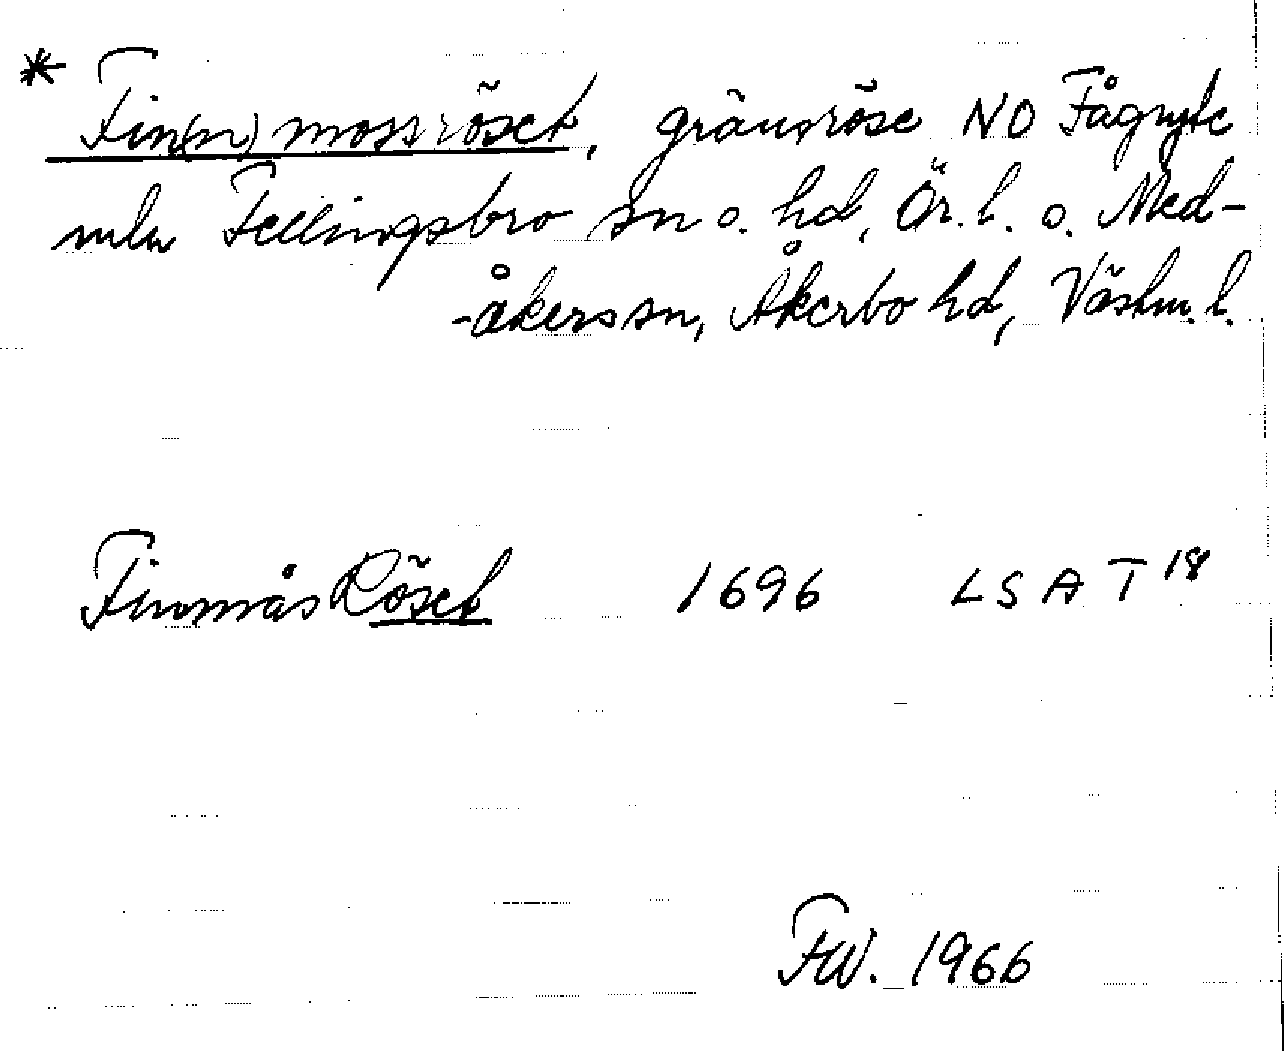 * Fin(n)mossröset, gränsröse NO Fågryte
mln Fellingsbro sn o. hd, Ör. l. o. Med-
-åkers sn, Åkerbo hd, Västm. l.
Finmås Röset 1696 LSA T 18
FW. 1966